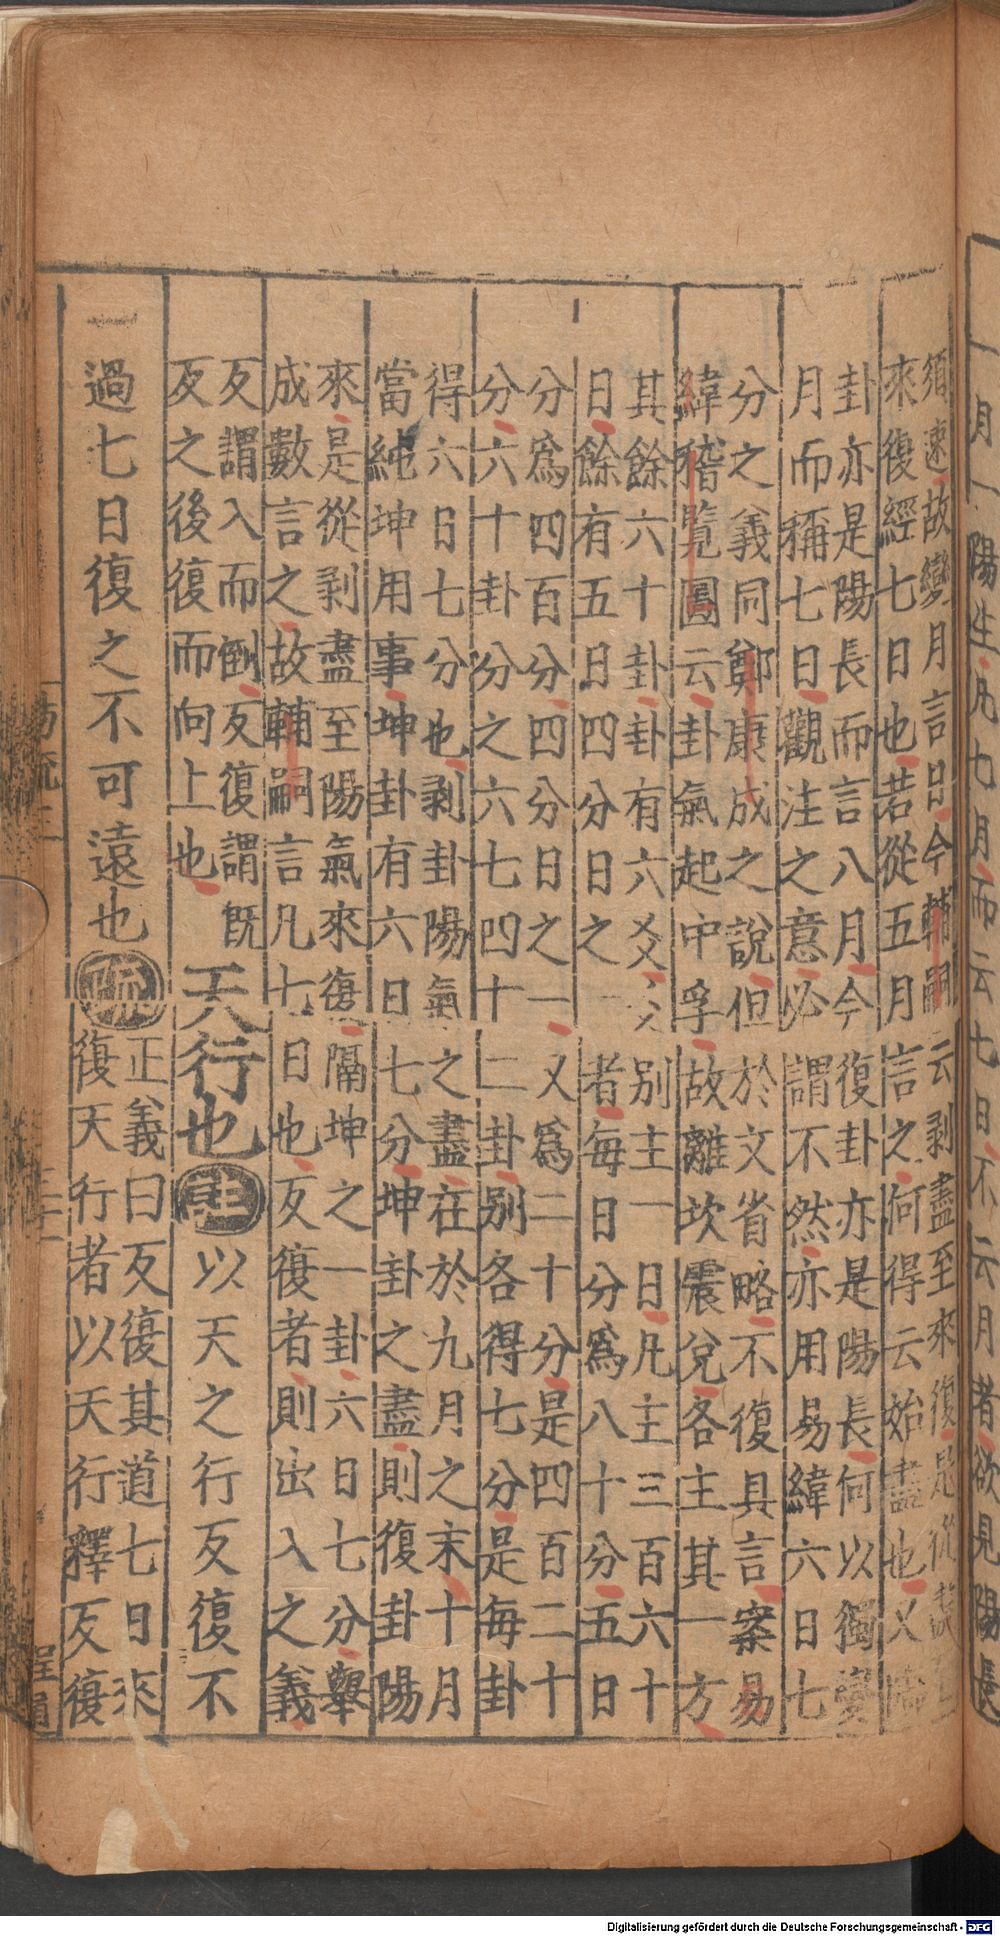 一月一陽生凡七月而云七日不云月者欲見陽長
須速故變月言日今輔嗣云剥盡至來復是從盡至
來復經七日也若從五月言之何得云始盡也又臨
卦亦是陽長而言八月今復卦亦是陽長何以獨變
月而稱七日觀注之意必謂不然亦用易緯六日七
分之義同鄭康成之說但於文省略不復具言案易
緯稽覽圖云卦氣起中孚故離坎震兌各主其一方
其餘六十卦卦有六爻爻别主一日凡主三百六十
日餘有五日四分日之一者每日分爲八十分五日
分爲四百分四分日之一又爲二十分是四百二十
分六十卦分之六七四十二卦别各得七分是每卦
得六日七分也剥卦陽氣之盡在於九月之末十月
當純坤用事坤卦有六日七分坤卦之盡則復卦陽
來是從剥盡至陽氣來復隔坤之一卦六日七分舉
成數言之故輔嗣言凡七日也反復者則出入之義
反謂入而倒反復謂既
反之後復而向上也
天行也
注
以天之行反復不
過七日復之不可遠也
疏
正義曰反復其道七日來
復天行者以天行釋反復
易疏三
Digitalisierung gefördert durch die Deutsche Forschungsgemeinschaft - DFG